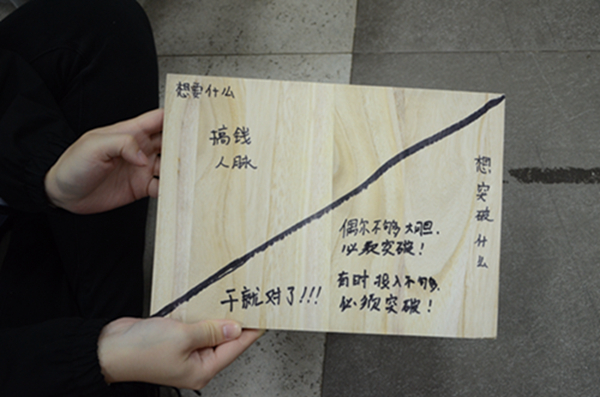 想要什么
搞钱
人脉
想突破什么
偶尔不够大胆.
必须突破！
有时投入不够.
必须突破！
干就对了!!!